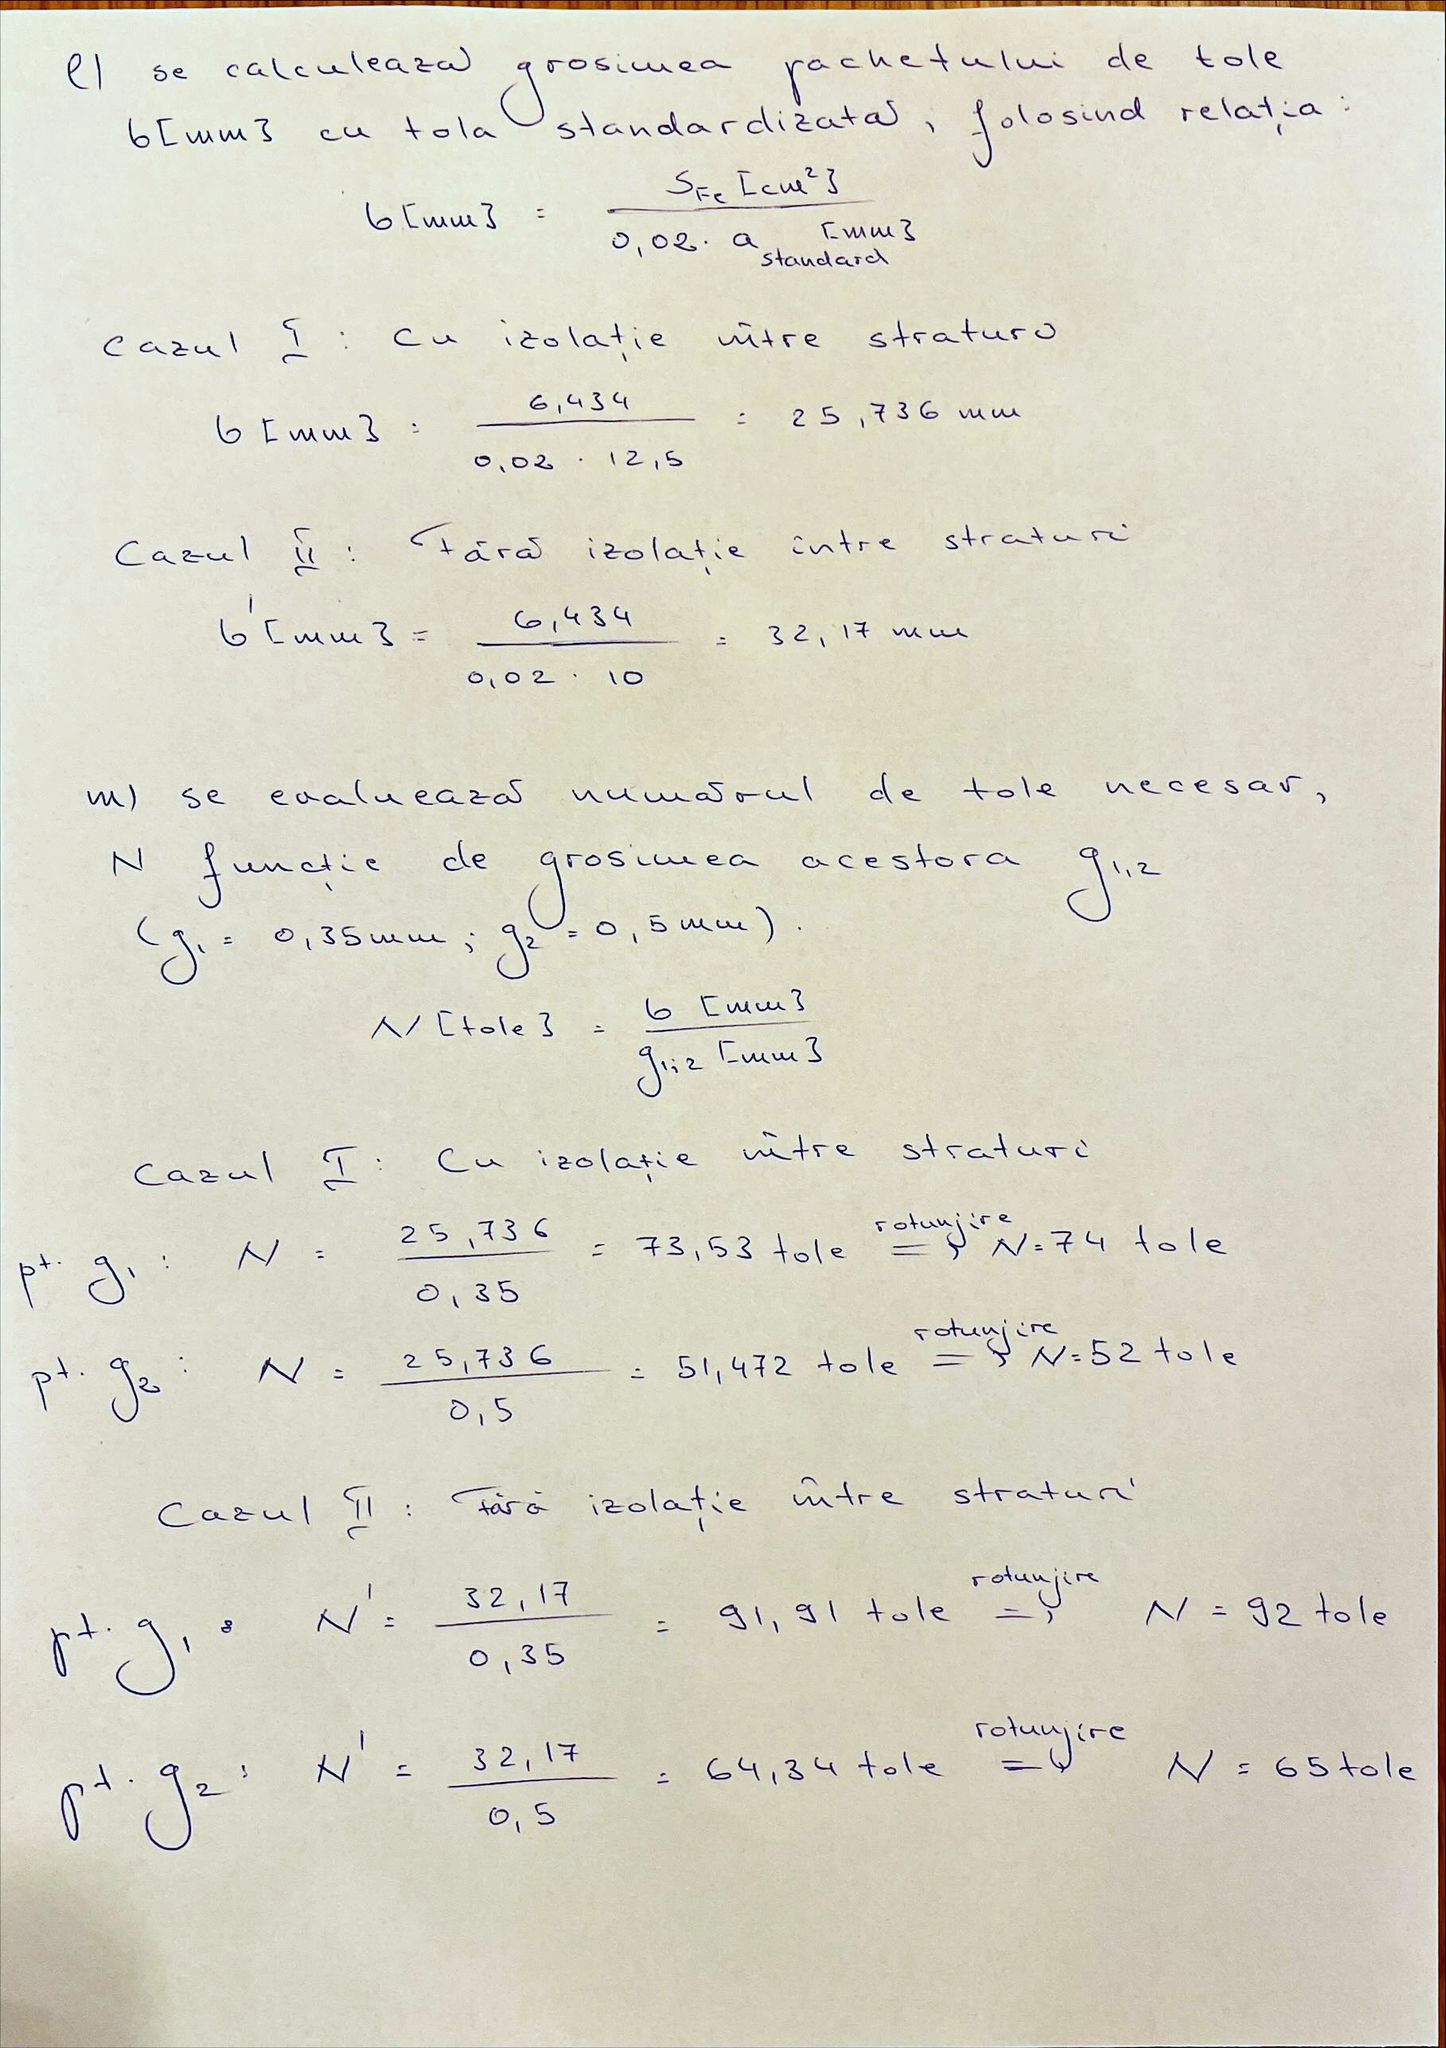 l) se calculează grosimea pachetului de tole
b[mm] cu tola standardizată, folosind relația:
b[mm] = S_Fe [cm²] / 0,02 · a standard [mm]
Cazul I : Cu izolație între straturi
b[mm] = 6,434 / 0,02 · 12,5 = 25,736 mm
Cazul II : Fără izolație între straturi
b'[mm] = 6,434 / 0,02 · 10 = 32,17 mm
m) se evaluează numărul de tole necesar,
N funcție de grosimea acestora g1,2
(g1 = 0,35mm ; g2 = 0,5mm).
N[tole] = b [mm] / g1;2 [mm]
Cazul I : Cu izolație între straturi
pt. g1 : N = 25,736 / 0,35 = 73,53 tole rotunjire => N=74 tole
pt. g2 : N = 25,736 / 0,5 = 51,472 tole rotunjire => N=52 tole
Cazul II : Fără izolație între straturi
pt. g1 : N' = 32,17 / 0,35 = 91,91 tole rotunjire => N = 92 tole
pt. g2 : N' = 32,17 / 0,5 = 64,34 tole rotunjire => N = 65 tole